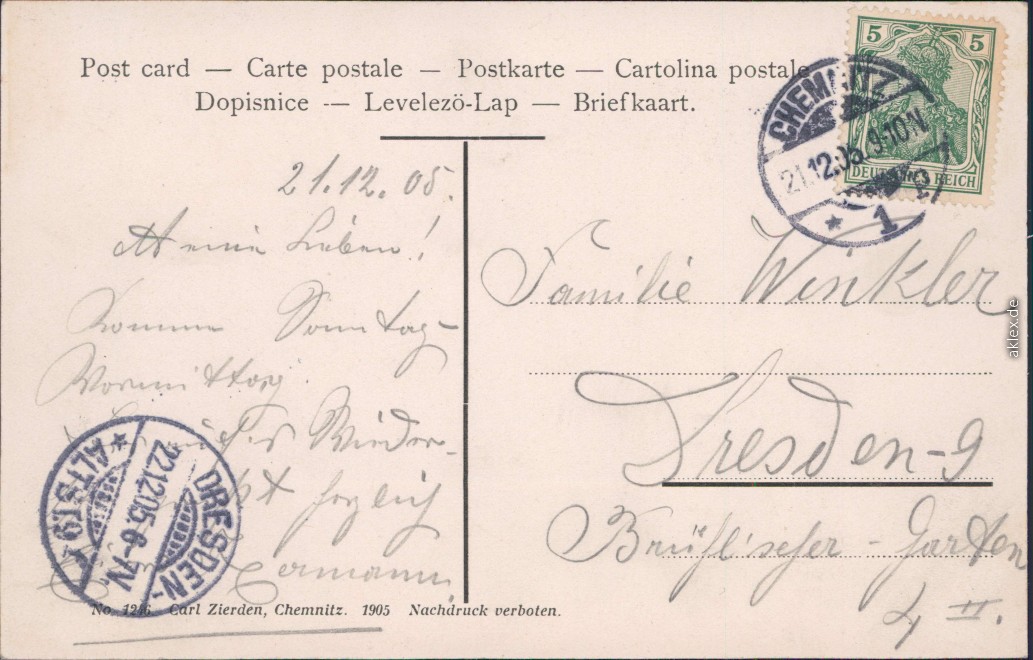 Post card — Carte postale — Postkarte — Cartolina postale
Dopisnice — Levelezö-Lap — Briefkaart.
5 5
DEUTSCHES REICH
CHEMNITZ
21.12.05. 9-10N
* 1
21.12.05.
Meine Lieben!
Komme Sonntag
Vormittag.
Wieder-
herzlich
Hermann.
DRESDEN-
22.12.05. 6-7V.
* ALTST. 9
Familie Winkler
Dresden-9
Brühl'scher-Garten
4 II.
No. 1246 Carl Zierden, Chemnitz. 1905 Nachdruck verboten.
aklex.de